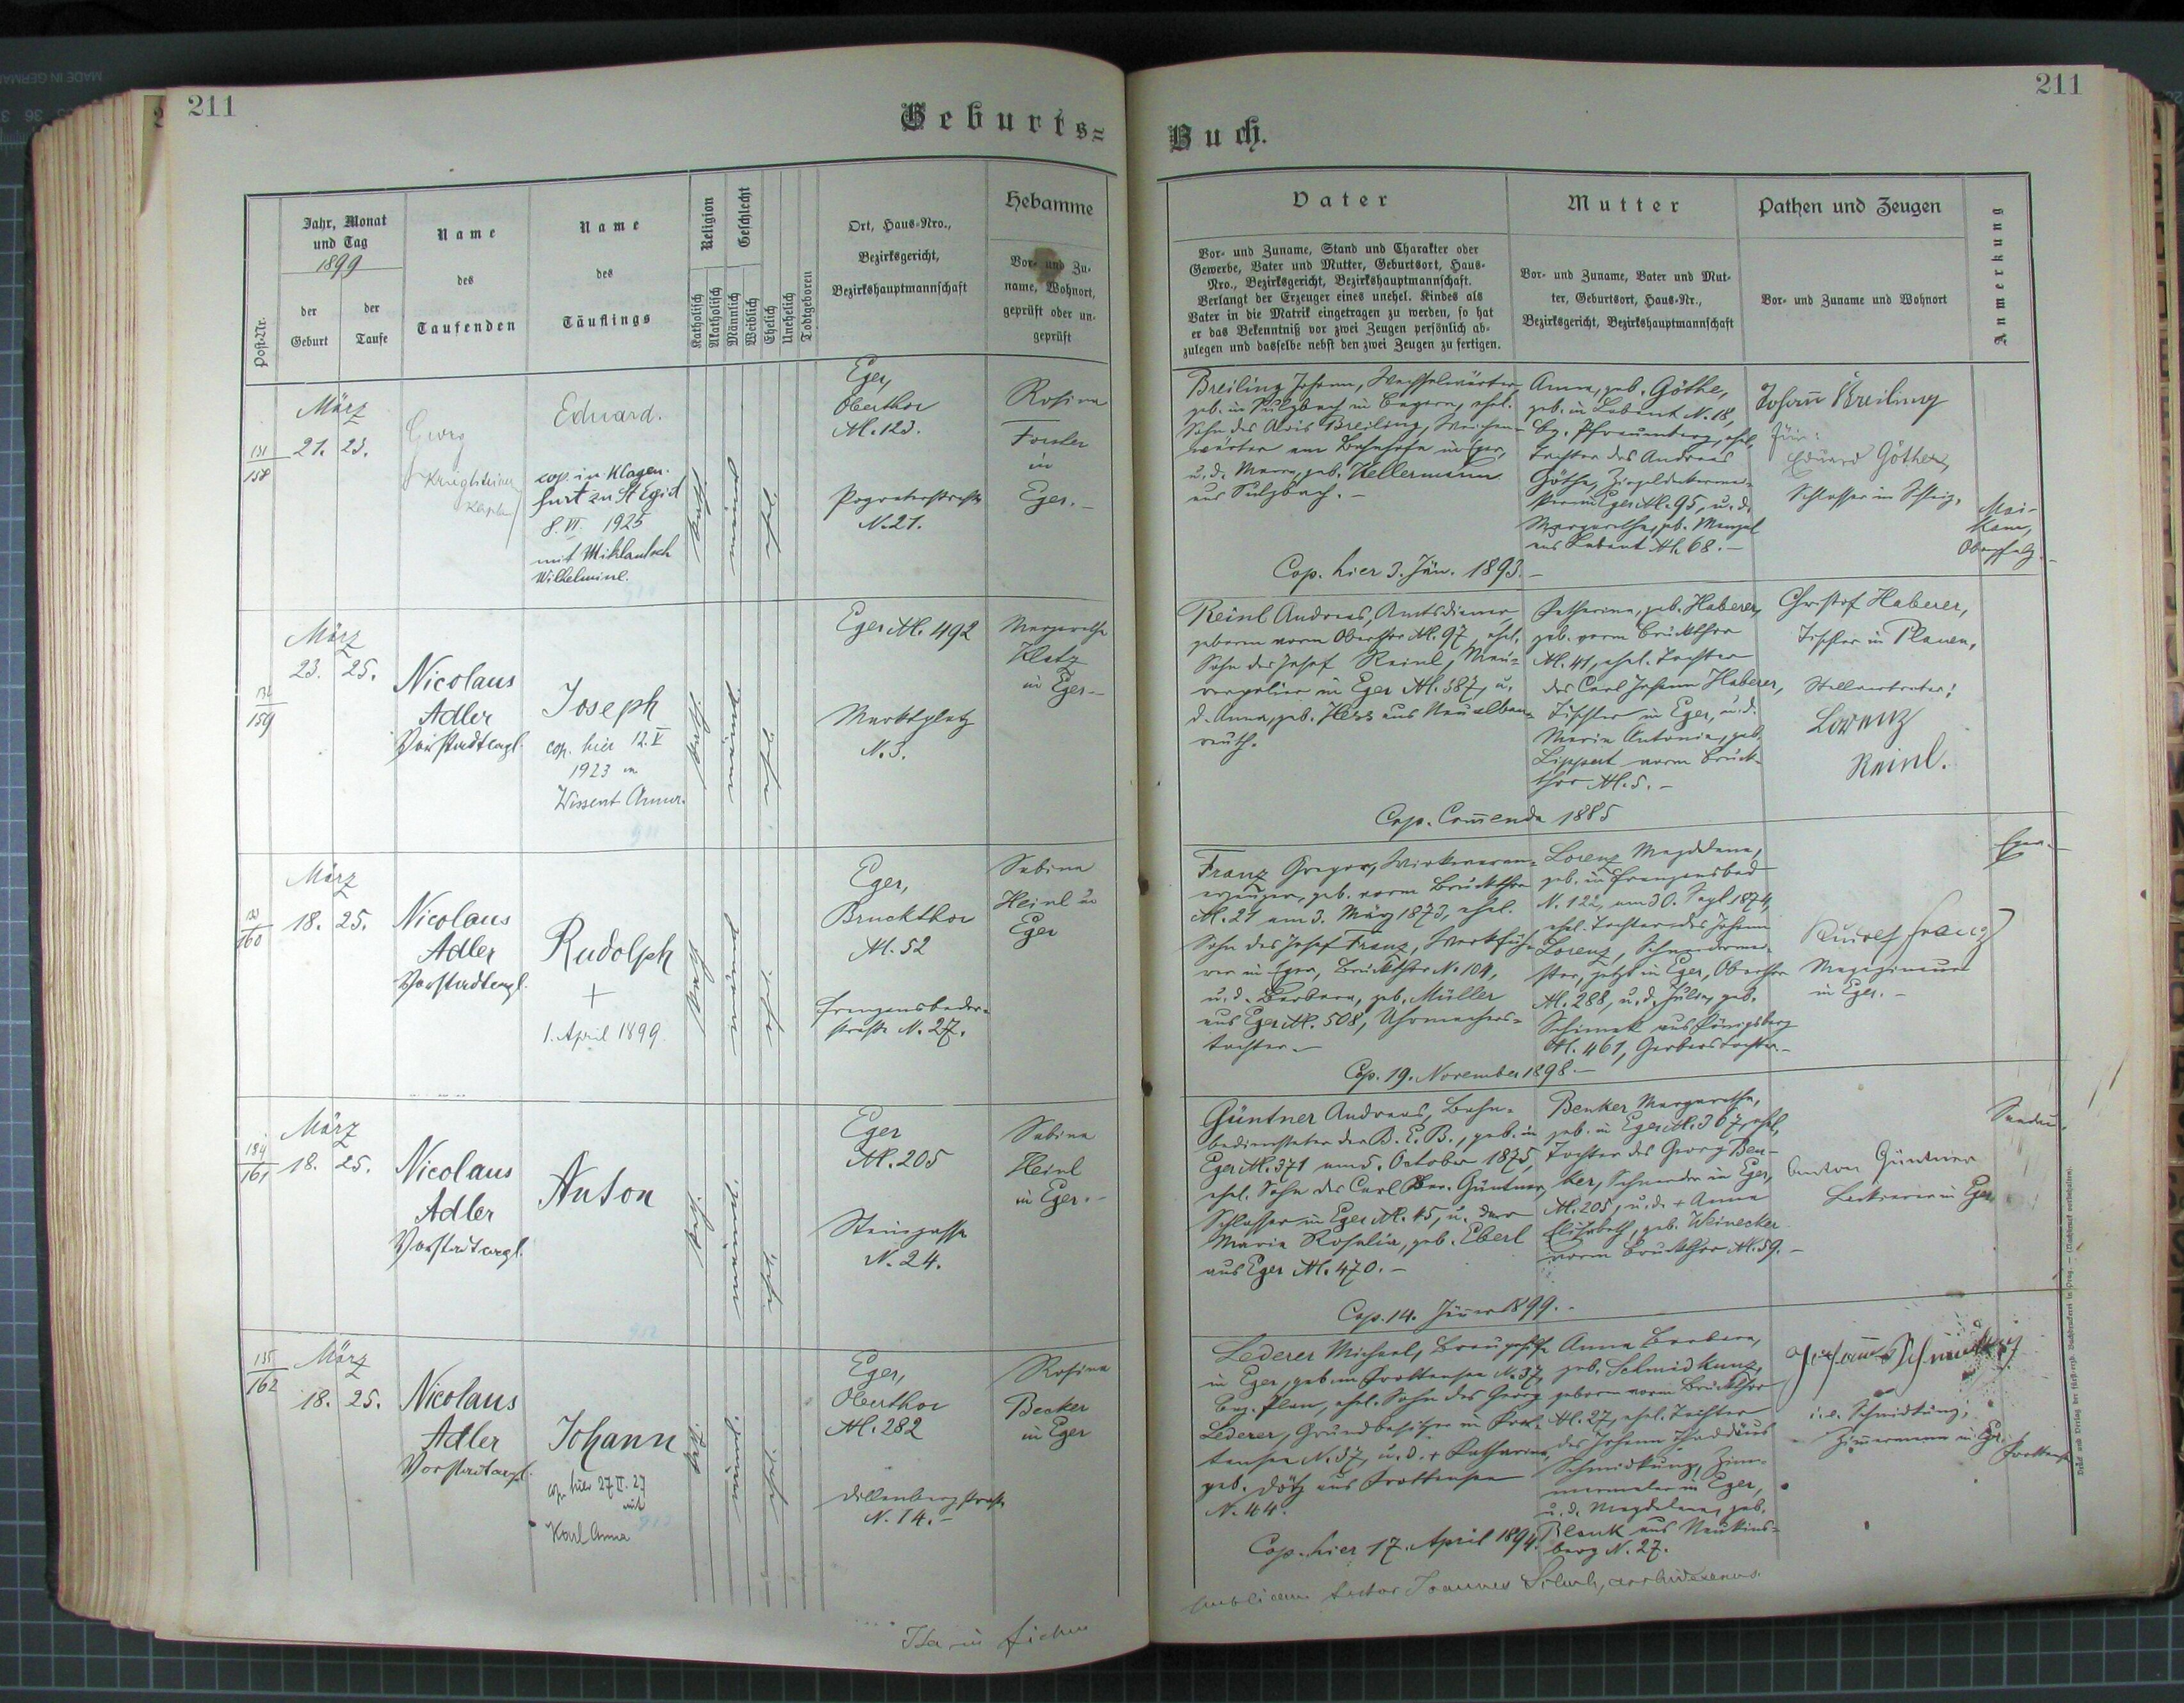 211
Geburts=
Jahr, Monat
und Tag
1899
der
Geburt
der
Taufe
Post-Nr.
Name
des
Taufenden
Name
des
Täuflings
Religion
Katholisch
Akatholisch
Geschlecht
Männlich
Weiblich
Ehelich
Unehelich
Todtgeboren
Ort, Haus=Nro.,
Bezirksgericht,
Bezirkshauptmannschaft
Hebamme
Vor- und Zu-
name, Wohnort,
geprüft oder un-
geprüft
131
158
März
21. 23.
Georg
Eduard.
cop. in Klagen-
furt zu St Egid
8. VI. 1925
mit Miklautsch
Wilhelmine.
kath.
männl.
ehel.
Eger,
Oberthor
N. 123.
N. 21.
Rosina
Forster
in
Eger.-
132
159
März
23. 25.
Nicolaus
Adler
Vorstadtcapl.
Joseph
cop. hier 12. V
1923 m
Wissent Anna.
kath.
männl.
ehel.
Eger N. 492
Marktplatz
N. 3.
Margaretha
Klatz
in Eger-
133
160
März
18. 25.
Nicolaus
Adler
Vorstadtcapl.
Rudolph
+
1. April 1899.
kath.
männl.
ehel.
Eger,
Bruckthor
N. 52
Franzensbader-
straße N. 27.
Sabina
Heinl in
Eger
134
161
März
18. 25.
Nicolaus
Adler
Vorstadtcapl.
Anton
kath.
männl.
ehel.
Eger
N. 205
Steingasse
N. 24.
Sabina
Heinl
in Eger.-
135
162
März
18. 25.
Nicolaus
Adler
Vorstadtcapl.
Johann
cop. hier 27 II. 27
mit
Karl Anna
kath.
männl.
ehel.
Eger,
Oberthor
N. 282
Dillenbergstraße
N. 14.-
Rosina
Becker
in Eger
211
Buch.
Vater
Vor- und Zuname, Stand und Charakter oder
Gewerbe, Vater und Mutter, Geburtsort, Haus-
Nro., Bezirksgericht, Bezirkshauptmannschaft.
Verlangt der Erzeuger eines unehel. Kindes als
Vater in die Matrik eingetragen zu werden, so hat
er das Bekenntniß vor zwei Zeugen persönlich ab-
zulegen und dasselbe nebst den zwei Zeugen zu fertigen.
Mutter
Vor- und Zuname, Vater und Mut-
ter, Geburtsort, Haus-Nr.,
Bezirksgericht, Bezirkshauptmannschaft
Pathen und Zeugen
Vor- und Zuname und Wohnort
Anmerkung
Breiling Johann, Wechselwärter,
geb. in Sulzbach in Bayern, ehel.
Sohn des Alois Breiling, Weichen-
wärter am Bahnhofe in Eger,
u. d. Marg., geb. Kellermann
aus Sulzbach.-
Anna, geb. Göthe,
geb. in Labant N. 18,
Bz. Pfraumberg, ehel.
Tochter des Andreas
Göthe, Ziegeldeckermei-
ster in Eger N. 95, u. d.
Margaretha, geb. Menzel
aus Labant N. 68.-
Johann Breiling
für:
Eduard Göther,
Cop. hier 3. Jän. 1893.-
Reinl Andreas, Amtsdiener,
geboren vorm Oberthor N. 97, ehel.
Sohn des Josef Reinl, Mau-
rerpolier in Eger N. 587, u.
d. Anna, geb. Hess aus Neualben-
reuth.
Katharina, geb. Haberer,
geb. vorm Bruckthor
N. 41, ehel. Tochter
des Carl Johann Haberer,
Tischler in Eger, u. d.
Maria Antonia, geb.
Lippert vorm Bruck-
thor N. 5.-
Christof Haberer,
Tischler in Plauen,
Stellvertreter:
Lorenz
Reinl.
Cop. Com̄enda 1885
Franz Gregor, Wirkwaren-
erzeuger, geb. vorm Bruckthor
N. 21 am 3. März 1873, ehel.
Sohn des Josef Franz, Werkfüh-
rer in Eger, Bruckthor N. 104,
u. d. Barbara, geb. Müller
aus Eger N. 508, Uhrmachers-
tochter.-
Lorenz Magdalena,
geb. in Franzensbad
N. 122, am 30. Sept. 1874,
ehel. Tochter des Johann
Lorenz, Schneidermei-
ster, jetzt in Eger, Oberthor
N. 288, u. d. Julie, geb.
Schimek aus Königsberg
N. 461, Gerberstochter.-
Rudolf Franz
Magazineur
in Eger.-
Eger.
Cop. 19. November 1898.-
Güntner Andreas, Bahn-
bediensteter der B. E. B., geb. in
Eger N. 371 am 5. October 1875,
ehel. Sohn des Carl Güntner,
Schlosser in Eger N. 45, u. der
Maria Rosalia, geb. Eberl
aus Eger N. 470.-
Benker Margaretha,
geb. in Eger N. 367, ehel.
Tochter des Georg Ben-
ker, Schneider in Eger,
N. 205, u. d. + Anna
Elisabeth, geb. Weinecker
vorm Bruckthor N. 59.-
Anton Güntner
Lackierer in Eger
Cop. 14. Jänner 1899.-
Lederer Michael, Braugehilfe
in Eger, geb. in Frottensee N. 37,
Bez. Plan, ehel. Sohn des Georg
Lederer, Grundbesitzer in Frot-
tensee N. 37, u. d. + Katharina,
geb. Dötz aus Frottensee
N. 44.
Anna Barbara,
geb. Schmidkunz,
geboren vorm Bruckthor
N. 27, ehel. Tochter
des Johann Thaddäus
Schmidkunz, Zim-
mermaler in Eger,
u. d. Magdalena, geb.
Blank aus Neukins-
berg N. 27.
in Eger
Frottensee
Cop. hier 17. April 1894.